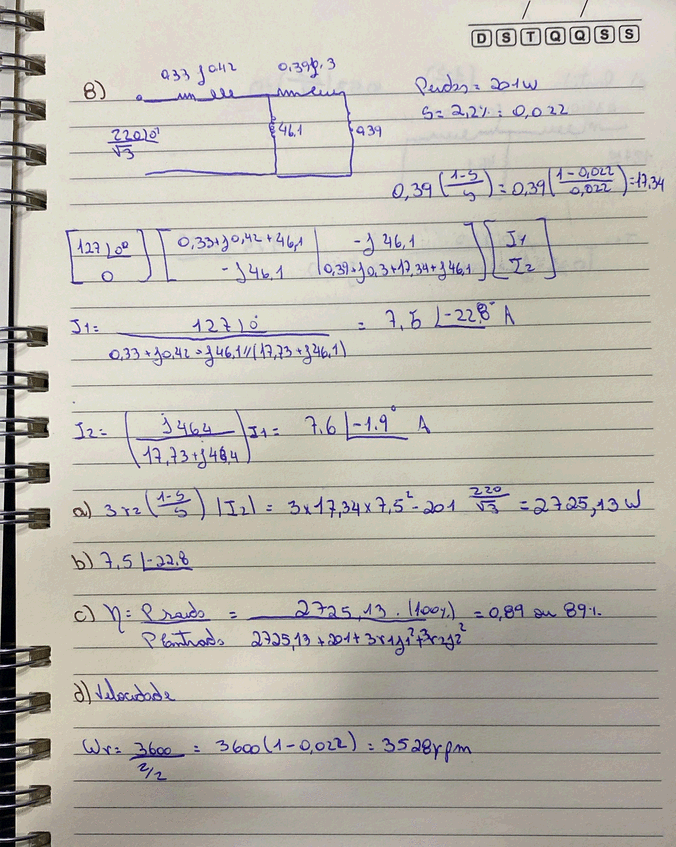 D S T Q Q S S
8) 0,33 j0,42 0,39 j0,3 Perdas = 201W
S = 2,2% : 0,022
220∠0° / √3 j46,1 0,39
0,39 (1-S / S) = 0,39 (1-0,022 / 0,022) = 17,34
[127∠0° / 0] [0,33+j0,42+46,1 | -j46,1 / -j46,1 | 0,39+j0,3+17,34+j46,1] [I1 / I2]
I1 = 127∠0° / 0,33+j0,42+j46,1//(17,73+j46,1) = 7,5∠-22,8° A
I2 = (j46,4 / 17,73+j46,4) I1 = 7.6∠-1.9° A
a) 3r2 (1-S / S) |I2| = 3x17,34x7,5² - 201 220/√3 = 2725,13 W
b) 7,5∠-22,8
c) η = Psaída / Pentrada = 2725,13 . (100%) / 2725,13+201+3r1I1²+3r2I2² = 0,89 ou 89%
d) Velocidade
Wr = 3600 / 2/2 = 3600(1-0,022) = 3528rpm